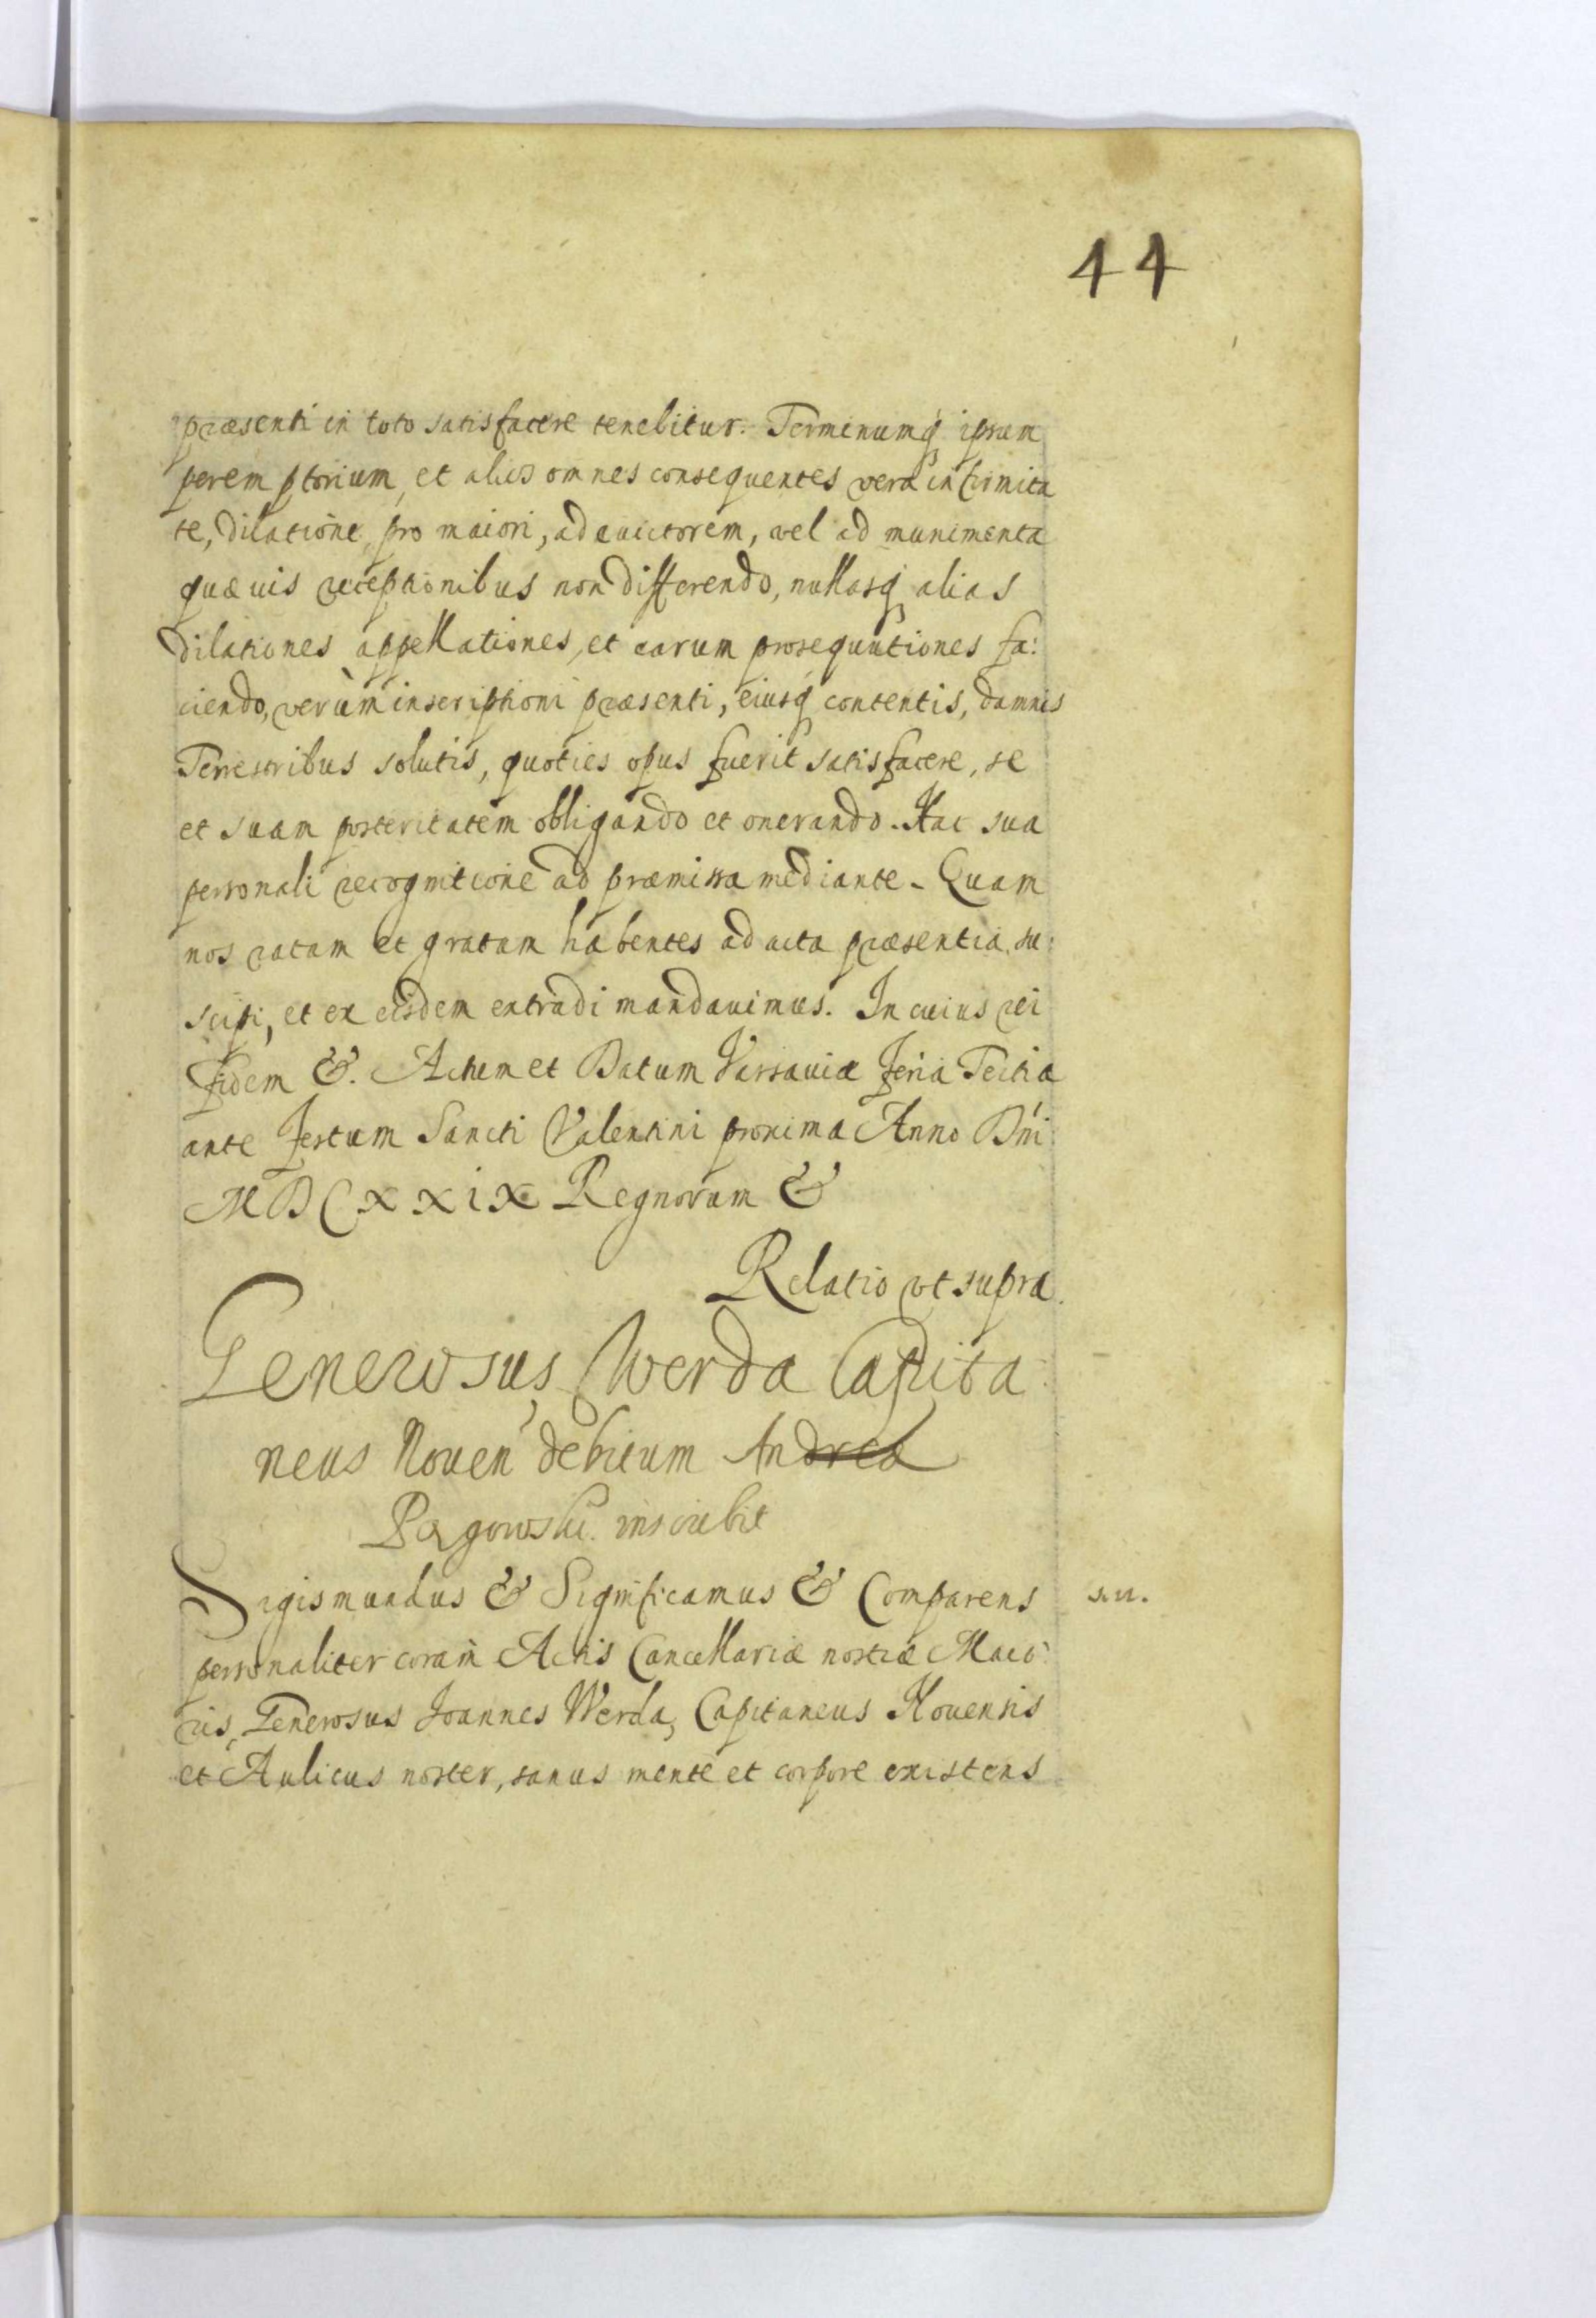 44
præsenti in toto satisfacere tenebitur. Terminumq́ ipsum
peremptorium, et alios omnes consequentes vera infirmita
te, dilatione, pro maiori, ad euictorem, vel ad munimenta
quæuis receptionibus non differendo, nullasq́ alias
dilationes appellationes, et earum prosequutiones fa:
ciendo, verùm inscriptioni præsenti, eiusq́ contentis, damnis
Terrestribus solutis, quoties opus fuerit satisfacere, se
et suam posteritatem obligando et onerando. Hac sua
personali recognitione ad præmissa mediante. Quam
nos ratam et gratam habentes ad acta præsentia su:
scipi, et ex eisdem extradi mandauimus. In cuius rei
fidem &. Actum et Datum Varsauiæ feria Tertia
ante festum Sancti Valentini proxima Anno Dńi
MDCXXIX Regnorum &
Relatio vt supra.
Generosus Werda Capita
neus Nouen debitum Andrea
Pągowski inscribit
Sigismundus & Significamus & Comparens
s.n.
personaliter coram Actis Cancellariæ nostræ Maio:
ris, Generosus Joannes Werda, Capitaneus Nouensis
et Aulicus noster, sanus mente et corpore existens